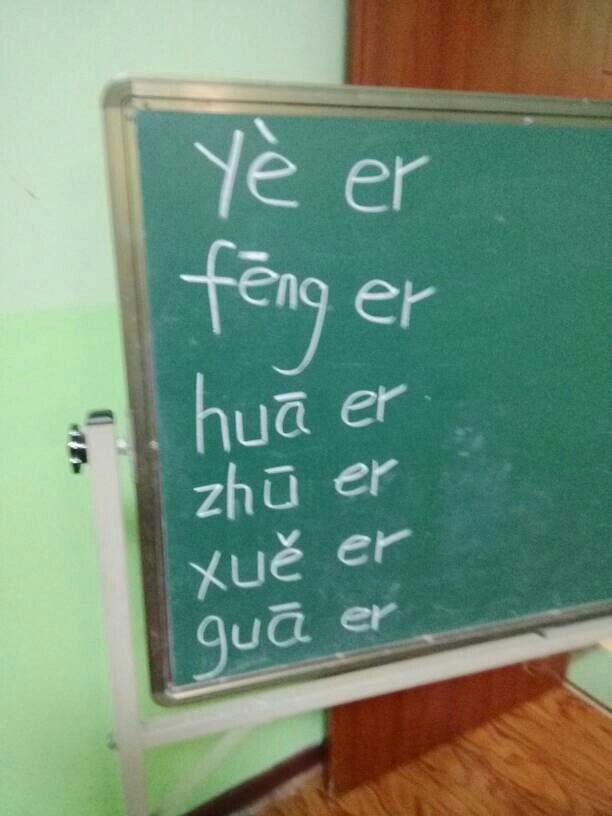 yè er
fēng er
huā er
zhū er
xuě er
guā er